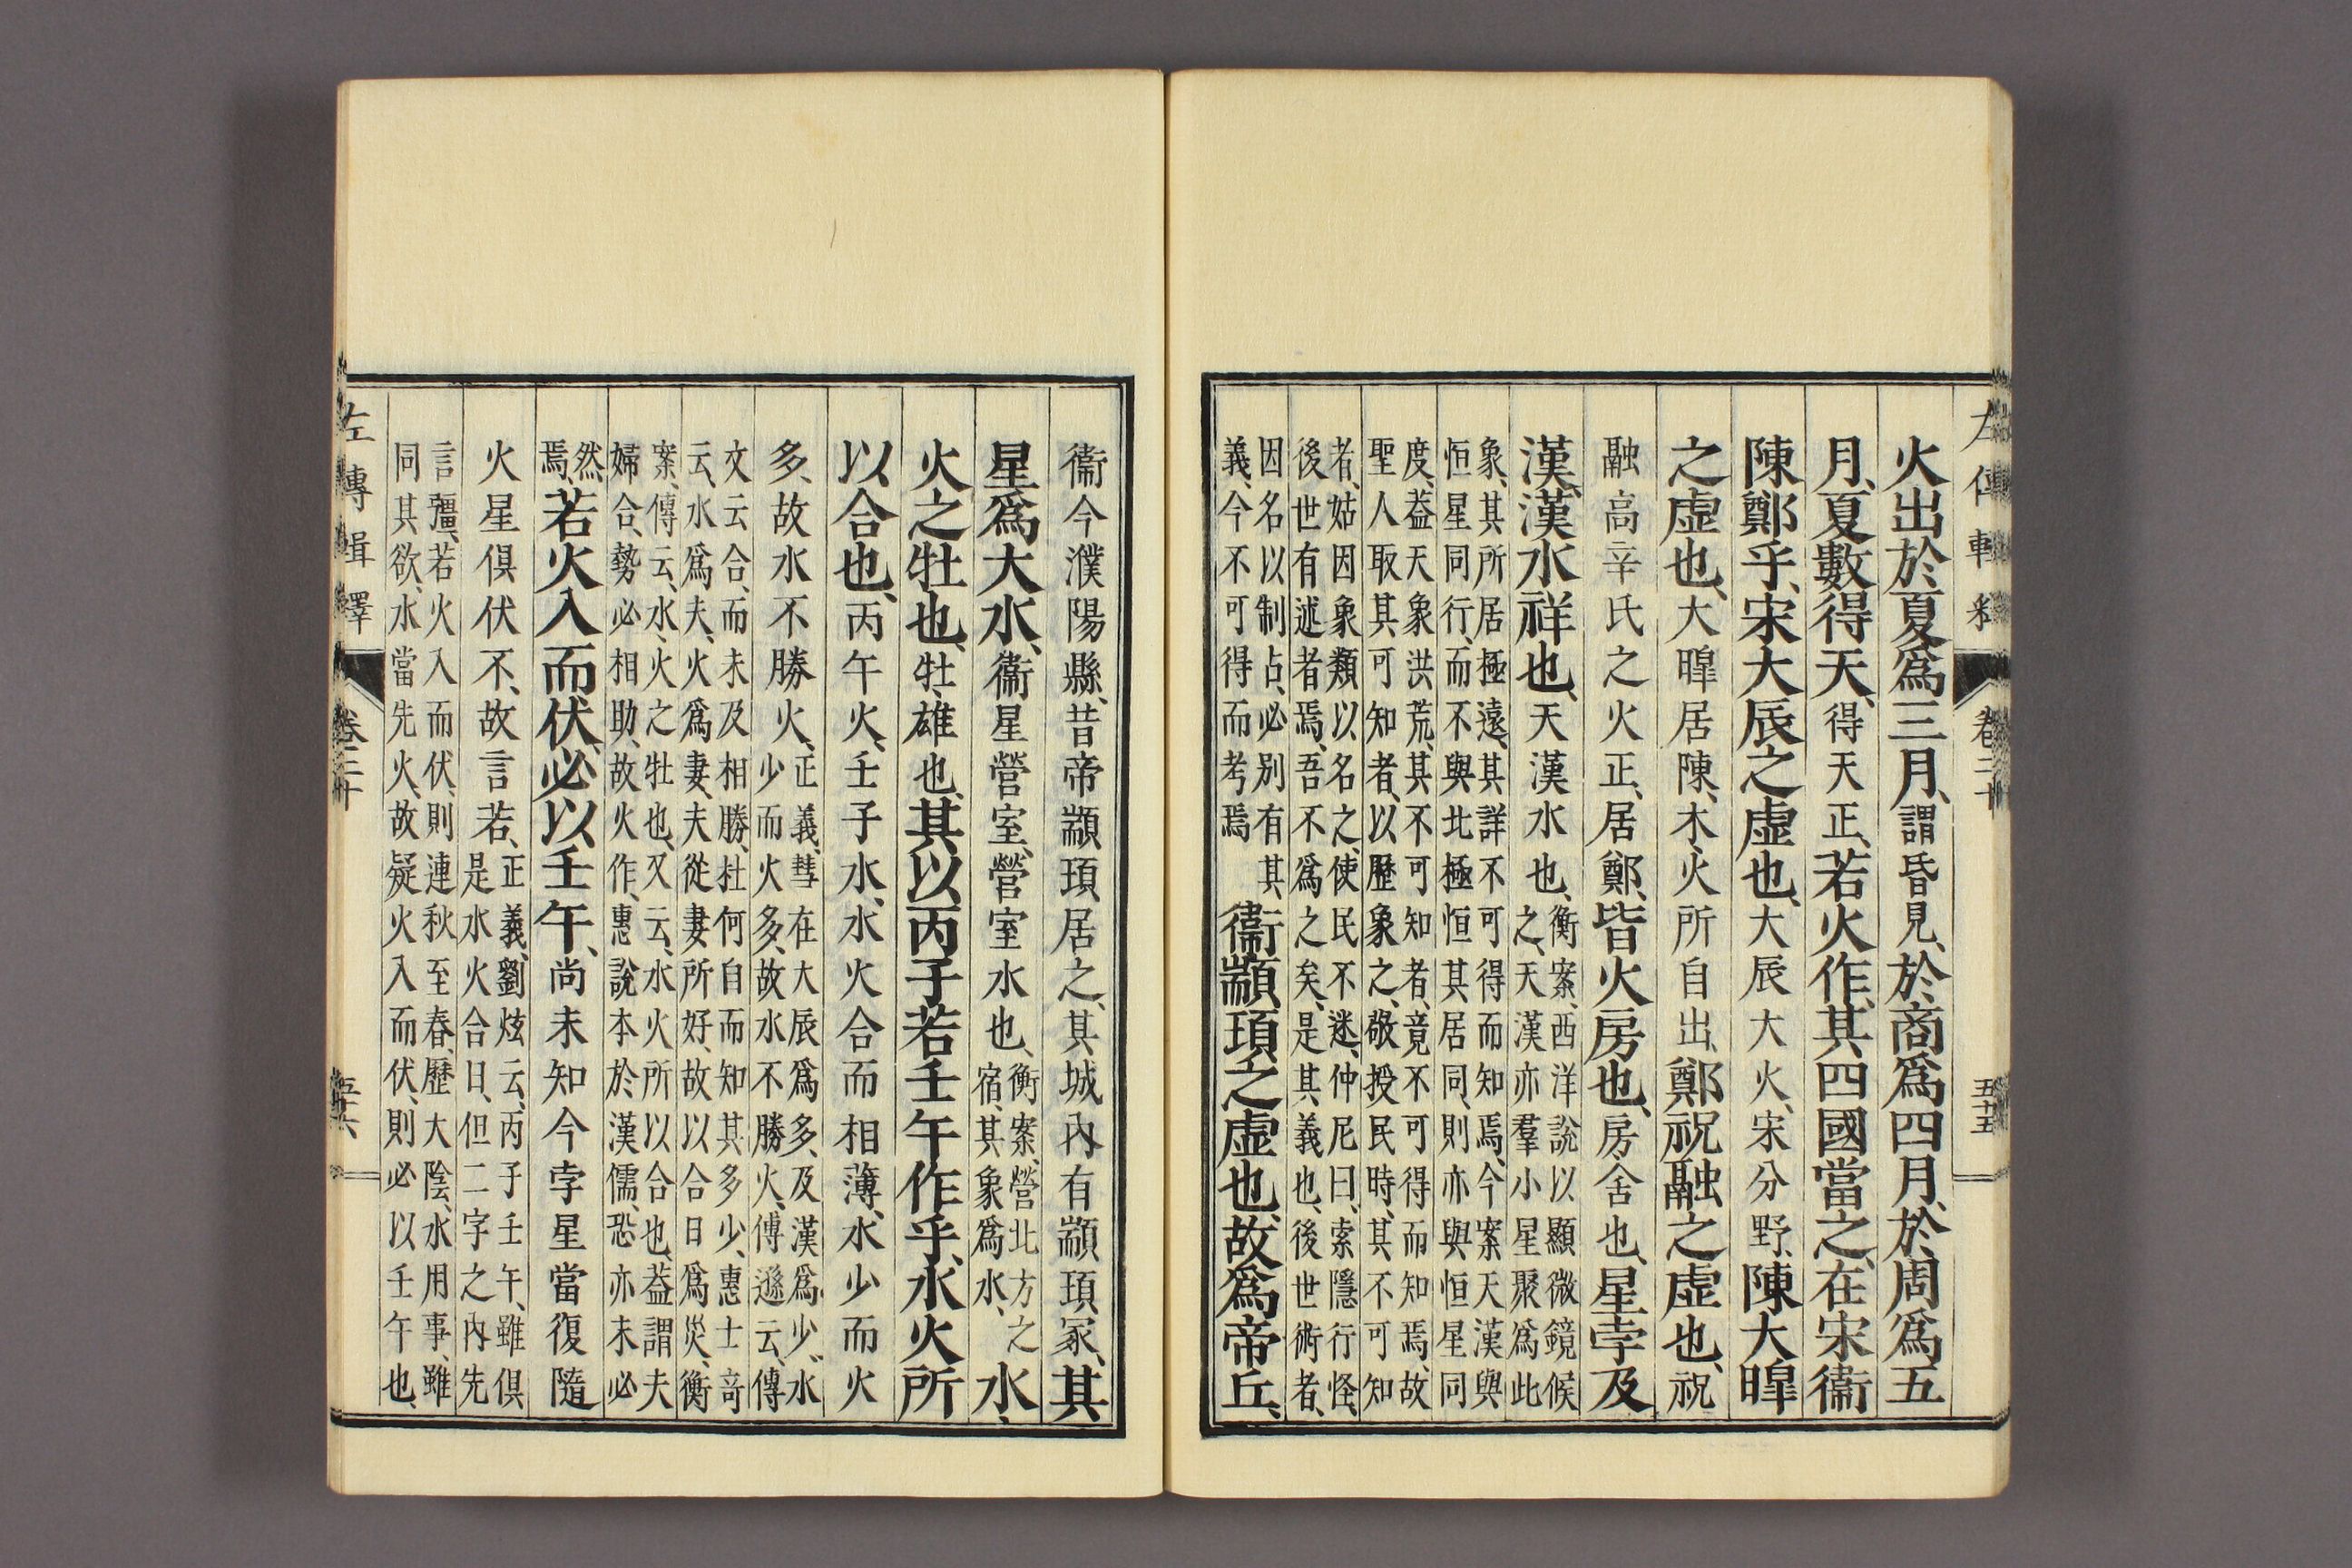 左傳輯釋 卷二十 五十五
火出於夏爲三月、謂昏見、於商爲四月、於周爲五
月、夏數得天、得天正、若火作、其四國當之、在宋衞
陳鄭乎、宋大辰之虛也、大辰大火、宋分野、陳大暤
之虛也、大暤居陳、木火所自出、鄭祝融之虛也、祝
融高辛氏之火正、居鄭、皆火房也、房、舍也、星孛及
漢、漢水祥也、天漢水也、
衡案、西洋說以顯微鏡候
之、天漢亦羣小星聚爲此
象、其所居極遠、其詳不可得而知焉、今案天漢與
恒星同行、而不與北極恒其居同、則亦與恒星同
度、葢天象洪荒、其不可知者、竟不可得而知焉、故
聖人取其可知者、以歷象之、敬授民時、其不可知
者、姑因象類以名之、使民不迷、仲尼曰、索隱行怪、
後世有述者焉、吾不爲之矣、是其義也、後世術者、
因名以制占、必別有其
義、今不可得而考焉
衞顓頊之虛也、故爲帝丘、
衞今濮陽縣、昔帝顓頊居之、其城內有顓頊冢、其
星爲大水、衞星營室、營室水也、
衡案、營北方之
宿、其象爲水、
水、
火之牡也、牡、雄也、其以丙子若壬午作乎、水火所
以合也、丙午火、壬子水、水火合而相薄、水少而火
多、故水不勝火、
正義、彗在大辰爲多、及漢爲少、水
少而火多、故水不勝火、傅遜云、傳
文云合、而未及相勝、杜何自而知其多少、惠士奇
云、水爲夫、火爲妻、夫從妻所好、故以合日爲災、衡
案、傳云、水、火之牡也、又云、水火所以合也、葢謂夫
婦合、勢必相助、故火作、惠說本於漢儒、恐亦未必
然
焉、
若火入而伏、必以壬午、尚未知今孛星當復隨
火星俱伏不、故言若、
正義、劉炫云、丙子壬午、雖俱
是水火合日、但二字之內先
言彊、若火入而伏、則連秋至春、歷大陰、水用事、雖
同其欲、水當先火、故疑火入而伏、則必以壬午也、
左傳輯釋 卷二十 五十六